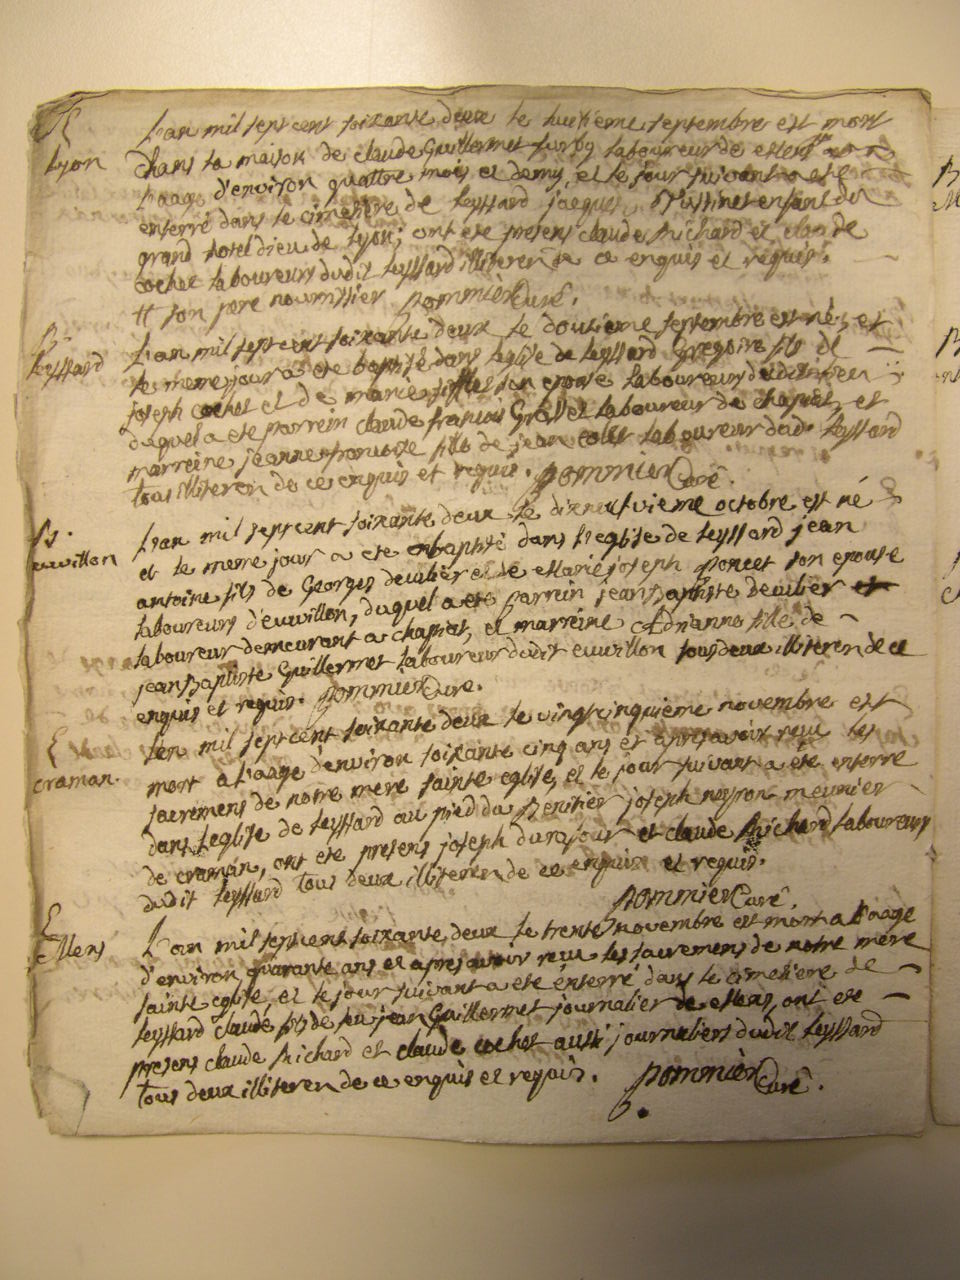 E
Lyon
L'an mil sept cent soixante deux le huitieme septembre est mort
dans la maison de claude Guillermet laboureur de
l'aage d'environ quattre mois et demy, et le jour suivant a ete
enterré dans le cimetiere de leyssard jacques enfant du
grand hotel dieu de lyon; ont ete presens claude Richard et claude
cochet laboureurs dudit leyssard illiteren de ce enquis et requis.
# son pere nourrissier pommier Curé.
B.
leyssard
L'an mil sept cent soixante deux le doutieme septembre est né, et
le meme jour a ete baptisé dans l'eglise de leyssard Gregoire fils de
joseph cochet et de marie son epouse laboureurs dudit lieu
duquel a ete parrein claude francois laboureur de chapiat, et
marreine jeanne francoise fille de jean collet laboureur dud. leyssard
tous illiteren de ce enquis et requis. pommier Curé.
B.
euvillon
L'an mil sept cent soixante deux le dixneufvieme octobre est né
et le meme jour a ete baptisé dans l'eglise de leyssard jean
antoine fils de Georges deculier et de Marie joseph poncet son epouse
laboureurs d'euvillon, duquel a ete parrein jean Baptiste deculier
laboureur demeurant a chapiat, et marreine Adrianne fille de
jean Baptiste Guillermet laboureur dudit euvillon tous deux illiteren de ce
enquis et requis. pommier Curé.
E
craman.
L'an mil sept cent soixante deux le vingt cinquieme novembre est
mort a l'aage d'environ soixante cinq ans et apres avoir reçu les
sacremens de notre mere sainte eglise, et le jour suivant a ete enterré
dans l'eglise de leyssard au pied du Benitier joseph neyron meunier
de craman, ont ete presens joseph durafour et claude Richard laboureurs
dudit leyssard tous deux illiteren de ce enquis et requis.
pommier Curé.
E
Ellens
L'an mil sept cent soixante deux le trente novembre est mort a l'aage
d'environ quarante ans et apres avoir reçu les sacremens de notre mere
sainte eglise, et le jour suivant a ete enterré dans le cimetiere de
leyssard claude fils de feu jean Guillermet journalier de ellens, ont ete
presens claude Richard et claude cochet aussi journaliers dudit leyssard
tous deux illiteren de ce enquis et requis. pommier Curé.